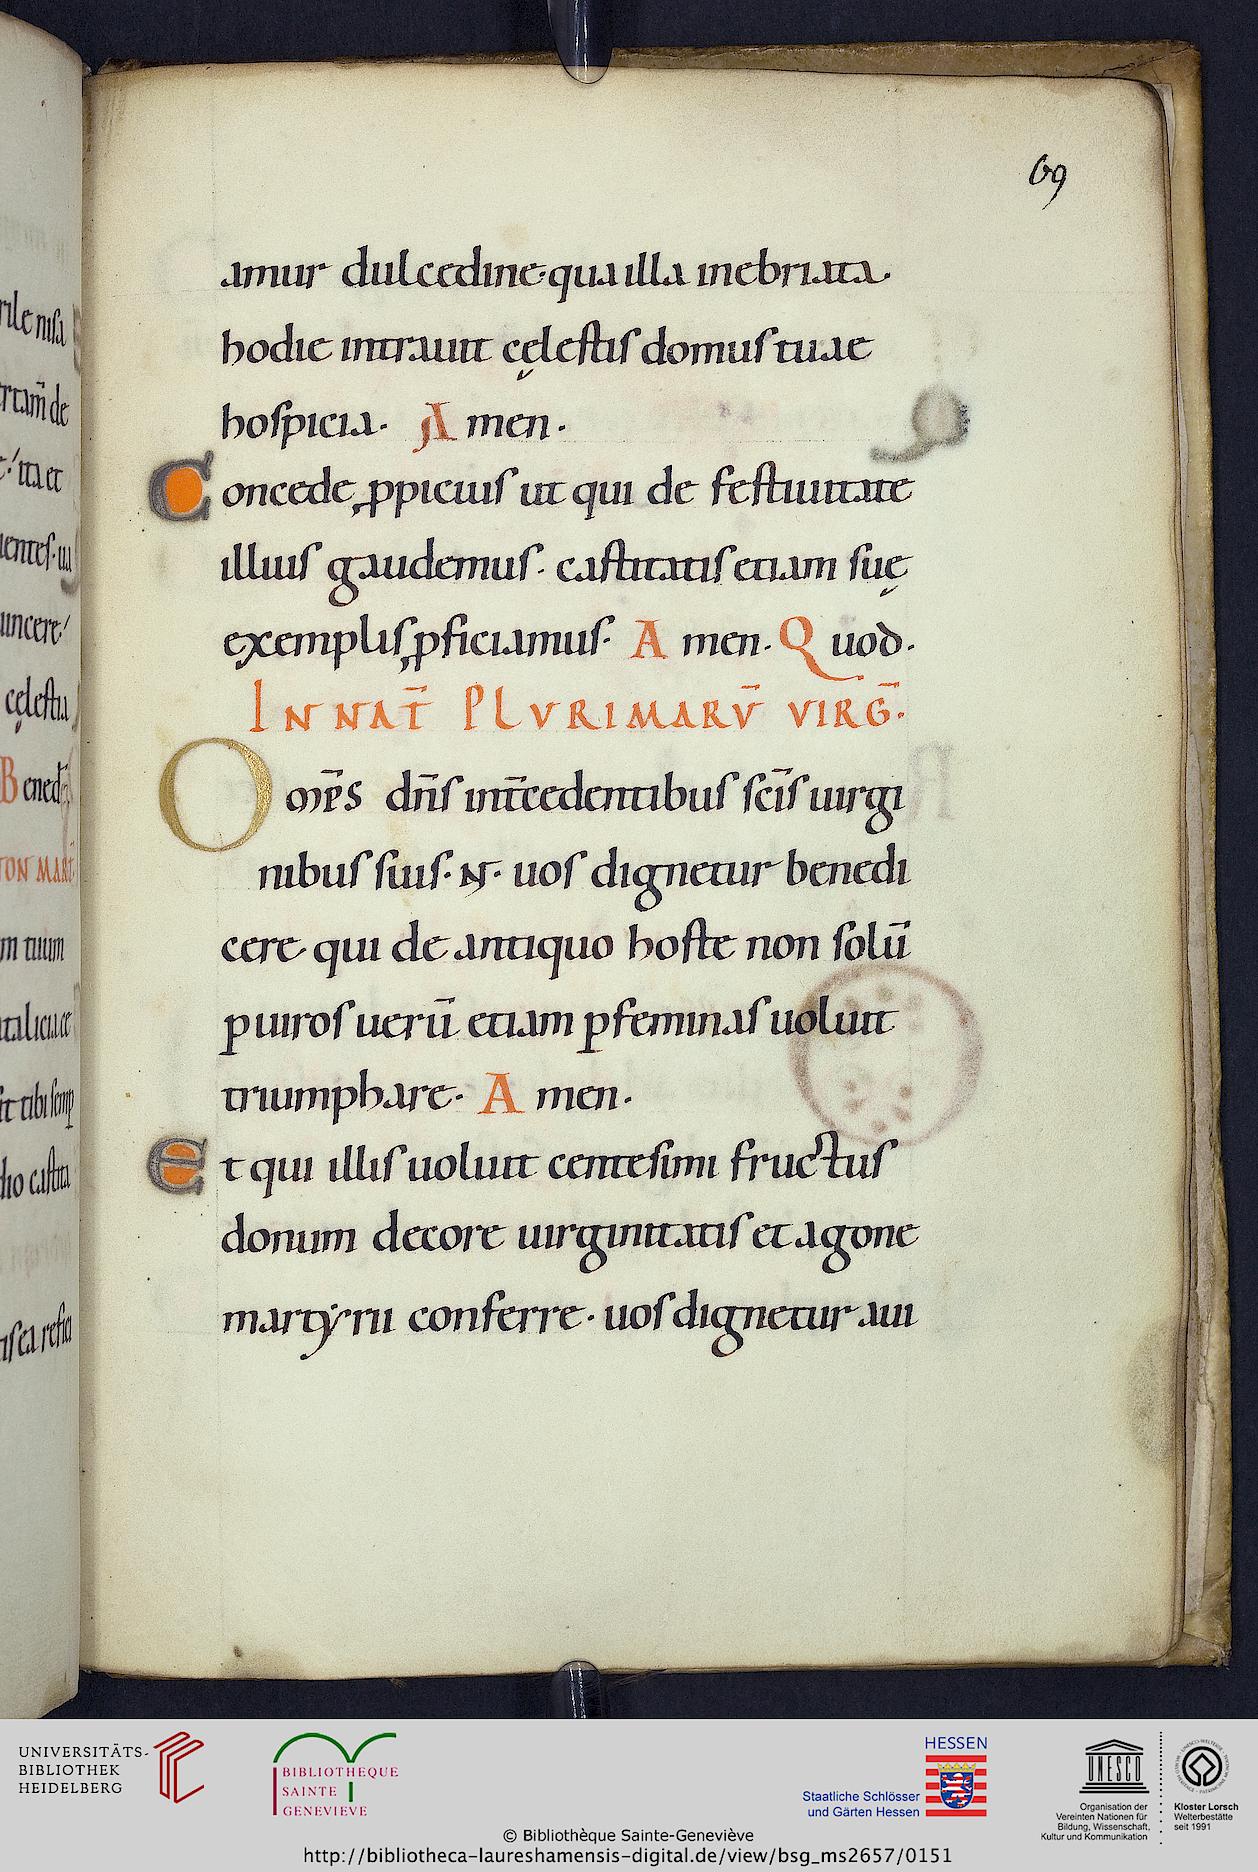 69
amur dulcedine· qua illa inebriata·
hodie intrauit cęlestis domus tuae
hospicia· Amen·
Concede ꝓpicius ut qui de festiuitate
illius gaudemus· castitatis etiam suę
exemplis ꝓficiamus· Amen· Quod·
IN NAT̄ PLVRIMARV̄ VIRḠ·
Om̅ps dn̅s int̅cedentibus sci̅s uirgi
nibus suis· N· uos dignetur benedi
cere· qui de antiquo hoste non solu̅
p uiros ueru̅ etiam p feminas uoluit
triumphare· Amen·
Et qui illis uoluit centesimi fructus
donum decore uirginitatis et agone
martẏrii conferre· uos dignetur aui
rile nisa
rtam̅ de
ita et
uentes· ui
uincere
cęlestia
Bened̅
TON MART̅
m tuum
atalicia ce
it tibi semp
dio castita
is ea refici
UNIVERSITÄTS-
BIBLIOTHEK
HEIDELBERG
BIBLIOTHEQUE
SAINTE
GENEVIEVE
HESSEN
Staatliche Schlösser
und Gärten Hessen
UNESCO
Organisation der
Vereinten Nationen für
Bildung, Wissenschaft,
Kultur und Kommunikation
Kloster Lorsch
Welterbestätte
seit 1991
© Bibliothèque Sainte-Geneviève
http://bibliotheca-laureshamensis-digital.de/view/bsg_ms2657/0151